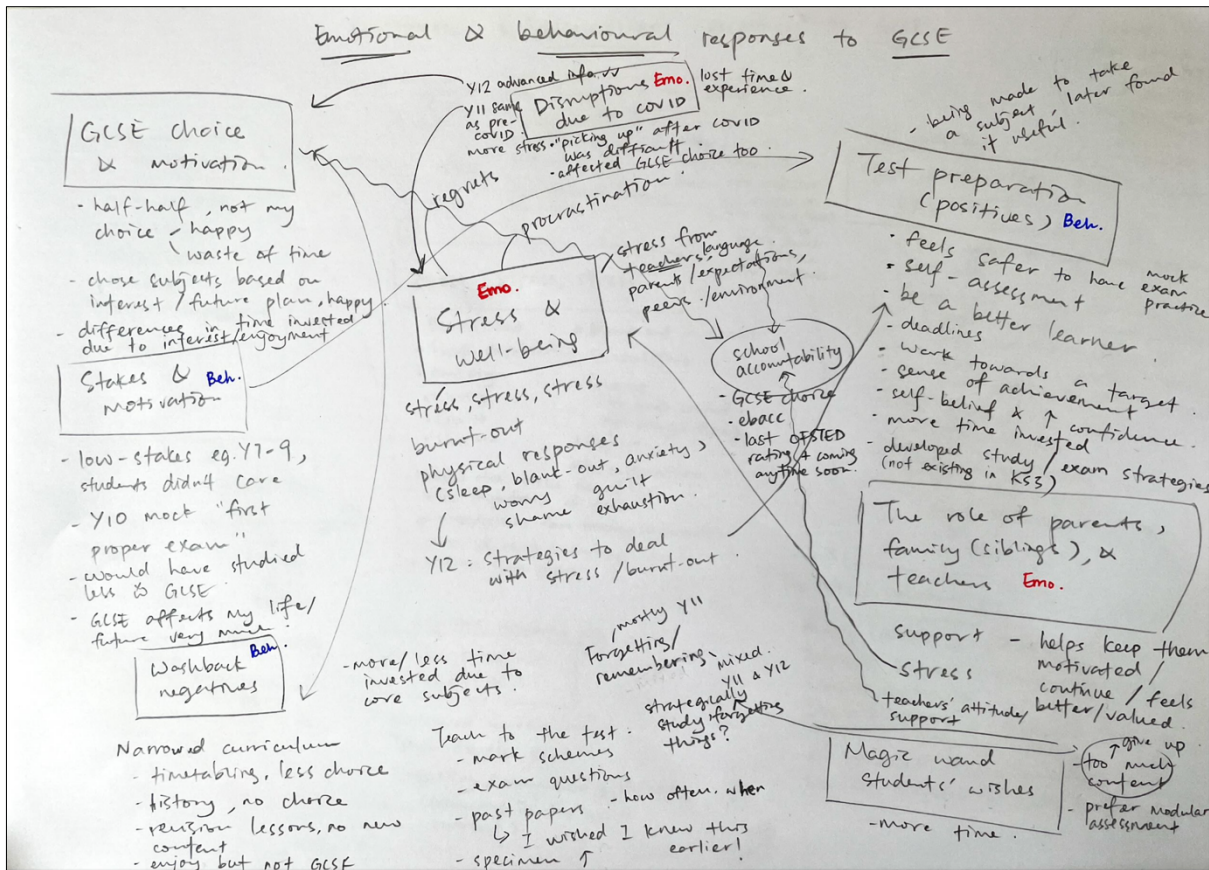 Emotional & behavioural responses to GCSE
GCSE choice
& motivation.
- half-half, not my
choice - happy
waste of time
- chose subjects based on
interest / future plan, happy.
- differences in time invested
due to interest/enjoyment
Stakes & Beh.
motivation
- low-stakes eg. Y7-9,
students didn't care
- Y10 mock "first
proper exam"
- would have studied
less GCSE
- GCSE affects my life/
future very much.
Washback Beh.
negatives
Narrowed curriculum
- timetabling, less choice
- history, no choice
- revision lessons, no new
content
- enjoy but not GCSE
Y12 advanced info. ✓✓
Y11 same
as pre-
covid.
more stress.
Disruptions Emo.
due to covid
lost time &
experience.
- "picking up" after covid
was difficult
- affected GCSE choice too.
regrets
procrastination.
Emo.
Stress &
well-being
stress, stress, stress
burnt-out
physical responses
(sleep, blank-out, anxiety)
worry guilt
shame exhaustion.
Y12: strategies to deal
with stress / burnt-out.
stress from
teachers, language.
parents / expectations,
peers. / environment
school
accountability
- GCSE choice
- ebacc
- last OFSTED
rating & coming
anytime soon.
- more/less time
invested due to
core subjects.
Teach to the test.
- mark schemes
- exam questions
- past papers - how often. when
↳ I wished I knew this
earlier!
- specimen ↑
mostly Y11
Forgetting/
remembering
mixed.
Y11 & Y12
strategically
study, forgetting
things?
- being made to take
a subject, later found
it useful.
Test preparation
(positives) Beh.
- feels safer to have mock
exam
practice
- self-assessment
- be a better learner.
- deadlines
- work towards a target.
- sense of achievement
- self-belief & ↑ confidence.
- more time invested
- developed study / exam strategies
(not existing in KS3)
The role of parents,
family (siblings), &
teachers Emo.
support - helps keep them
motivated /
continue / feels
better / valued.
stress
teachers' attitude/
support
Magic wand
students' wishes
- more time.
↑ give up
- too much
content
- prefer modular
assessment